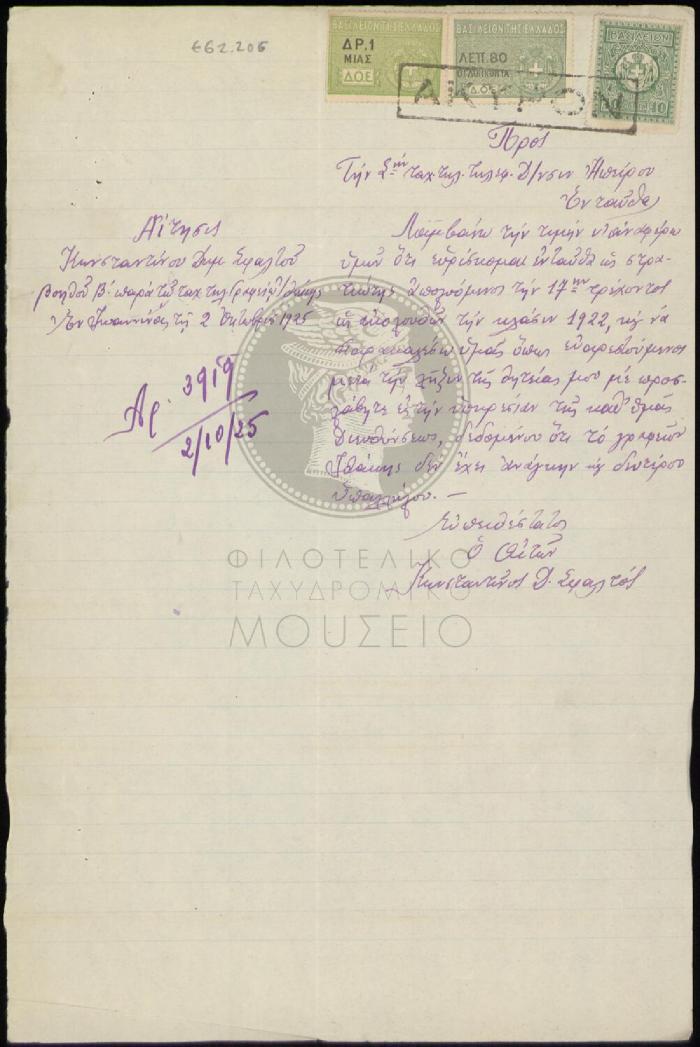 662.206
ΒΑΣΙΛΕΙΟΝ ΤΗΣ ΕΛΛΑΔΟΣ
ΔΡ.1
ΜΙΑΣ
ΔΟΕ
ΒΑΣΙΛΕΙΟΝ ΤΗΣ ΕΛΛΑΔΟΣ
ΛΕΠ.80
ΟΓΔΟΗΚΟΝΤΑ
Δ.Ο.Ε
ΒΑΣΙΛΕΙΟΝ
10 10
ΑΚΥΡΟΝ
Πρός
Τὴν Σην ταχ.τηλ.τηλεφ. Δ/νσιν Ἠπείρου
Ἐνταῦθα
Αἴτησις
Κωνσταντίνου Δημ. Σφαλτοῦ
βοηθοῦ Β' παρὰ τῷ ταχ.τηλ.Γραφείῳ Ἰθάκης
Ἐν Ἰωαννίνοις τῇ 2 Ὀκτωβρίου 1925
Ἀρ. 3919
2/10/25
Λαμβάνω τὴν τιμὴν ν' ἀναφέρω
ὑμῖν ὅτι εὑρίσκομαι ἐνταῦθα ὡς στρα-
τιώτης ἀπολυόμενος τὴν 17ην τρέχοντος
ὡς ἀκολουθῶν τὴν κλάσιν 1922, καὶ νὰ
παρακαλέσω ὑμᾶς ὅπως εὐαρεστούμενος
μετὰ τὴν λῆξιν τῆς θητείας μου μὲ προσ-
λάβητε εἰς τὴν ὑπηρεσίαν τῆς καθ' ὑμᾶς
Διευθύνσεως, δεδομένου ὅτι τὸ γραφεῖον
Ἰθάκης δὲν ἔχει ἀνάγκην καὶ δευτέρου
ὑπαλλήλου. —
Εὐπειθέστατος
Ὁ Αἰτῶν
Κωνσταντῖνος Δ. Σφαλτός
ΦΙΛΟΤΕΛΙΚΟ
ΤΑΧΥΔΡΟΜΙΚΟ
ΜΟΥΣΕΙΟ